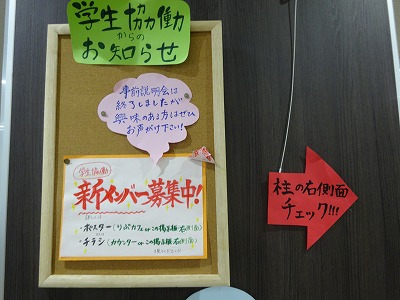 学生協働
からの
お知らせ
事前説明会は
終了しましたが
興味のある方はぜひ
お声がけ下さい!
学生協働
新メンバー募集中!
詳しくは
・ポスター(りぶカフェorこの掲示板右側面)
・チラシ(カウンターorこの掲示板右側面)
柱の右側面
チェック!!!